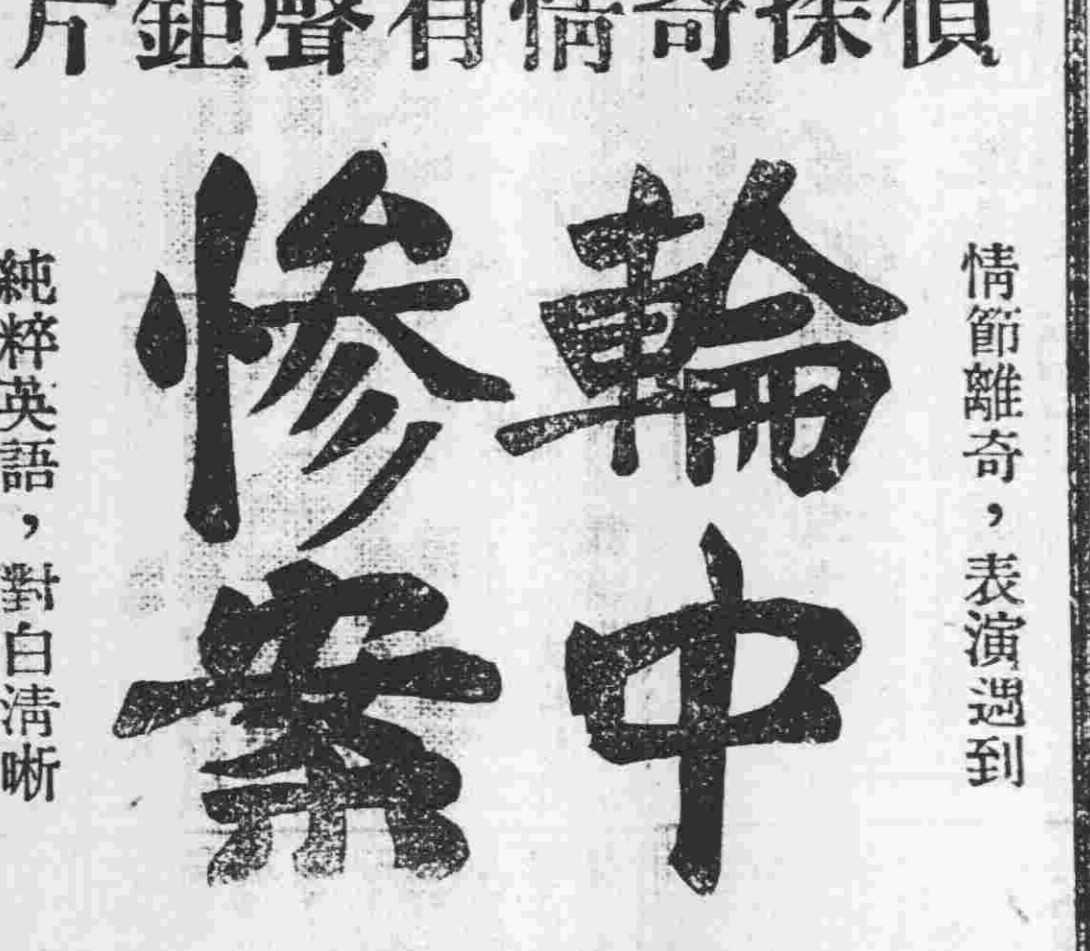 偵探奇情有聲鉅片
情節離奇，表演週到
輪中
惨案
純粹英語，對白清晰